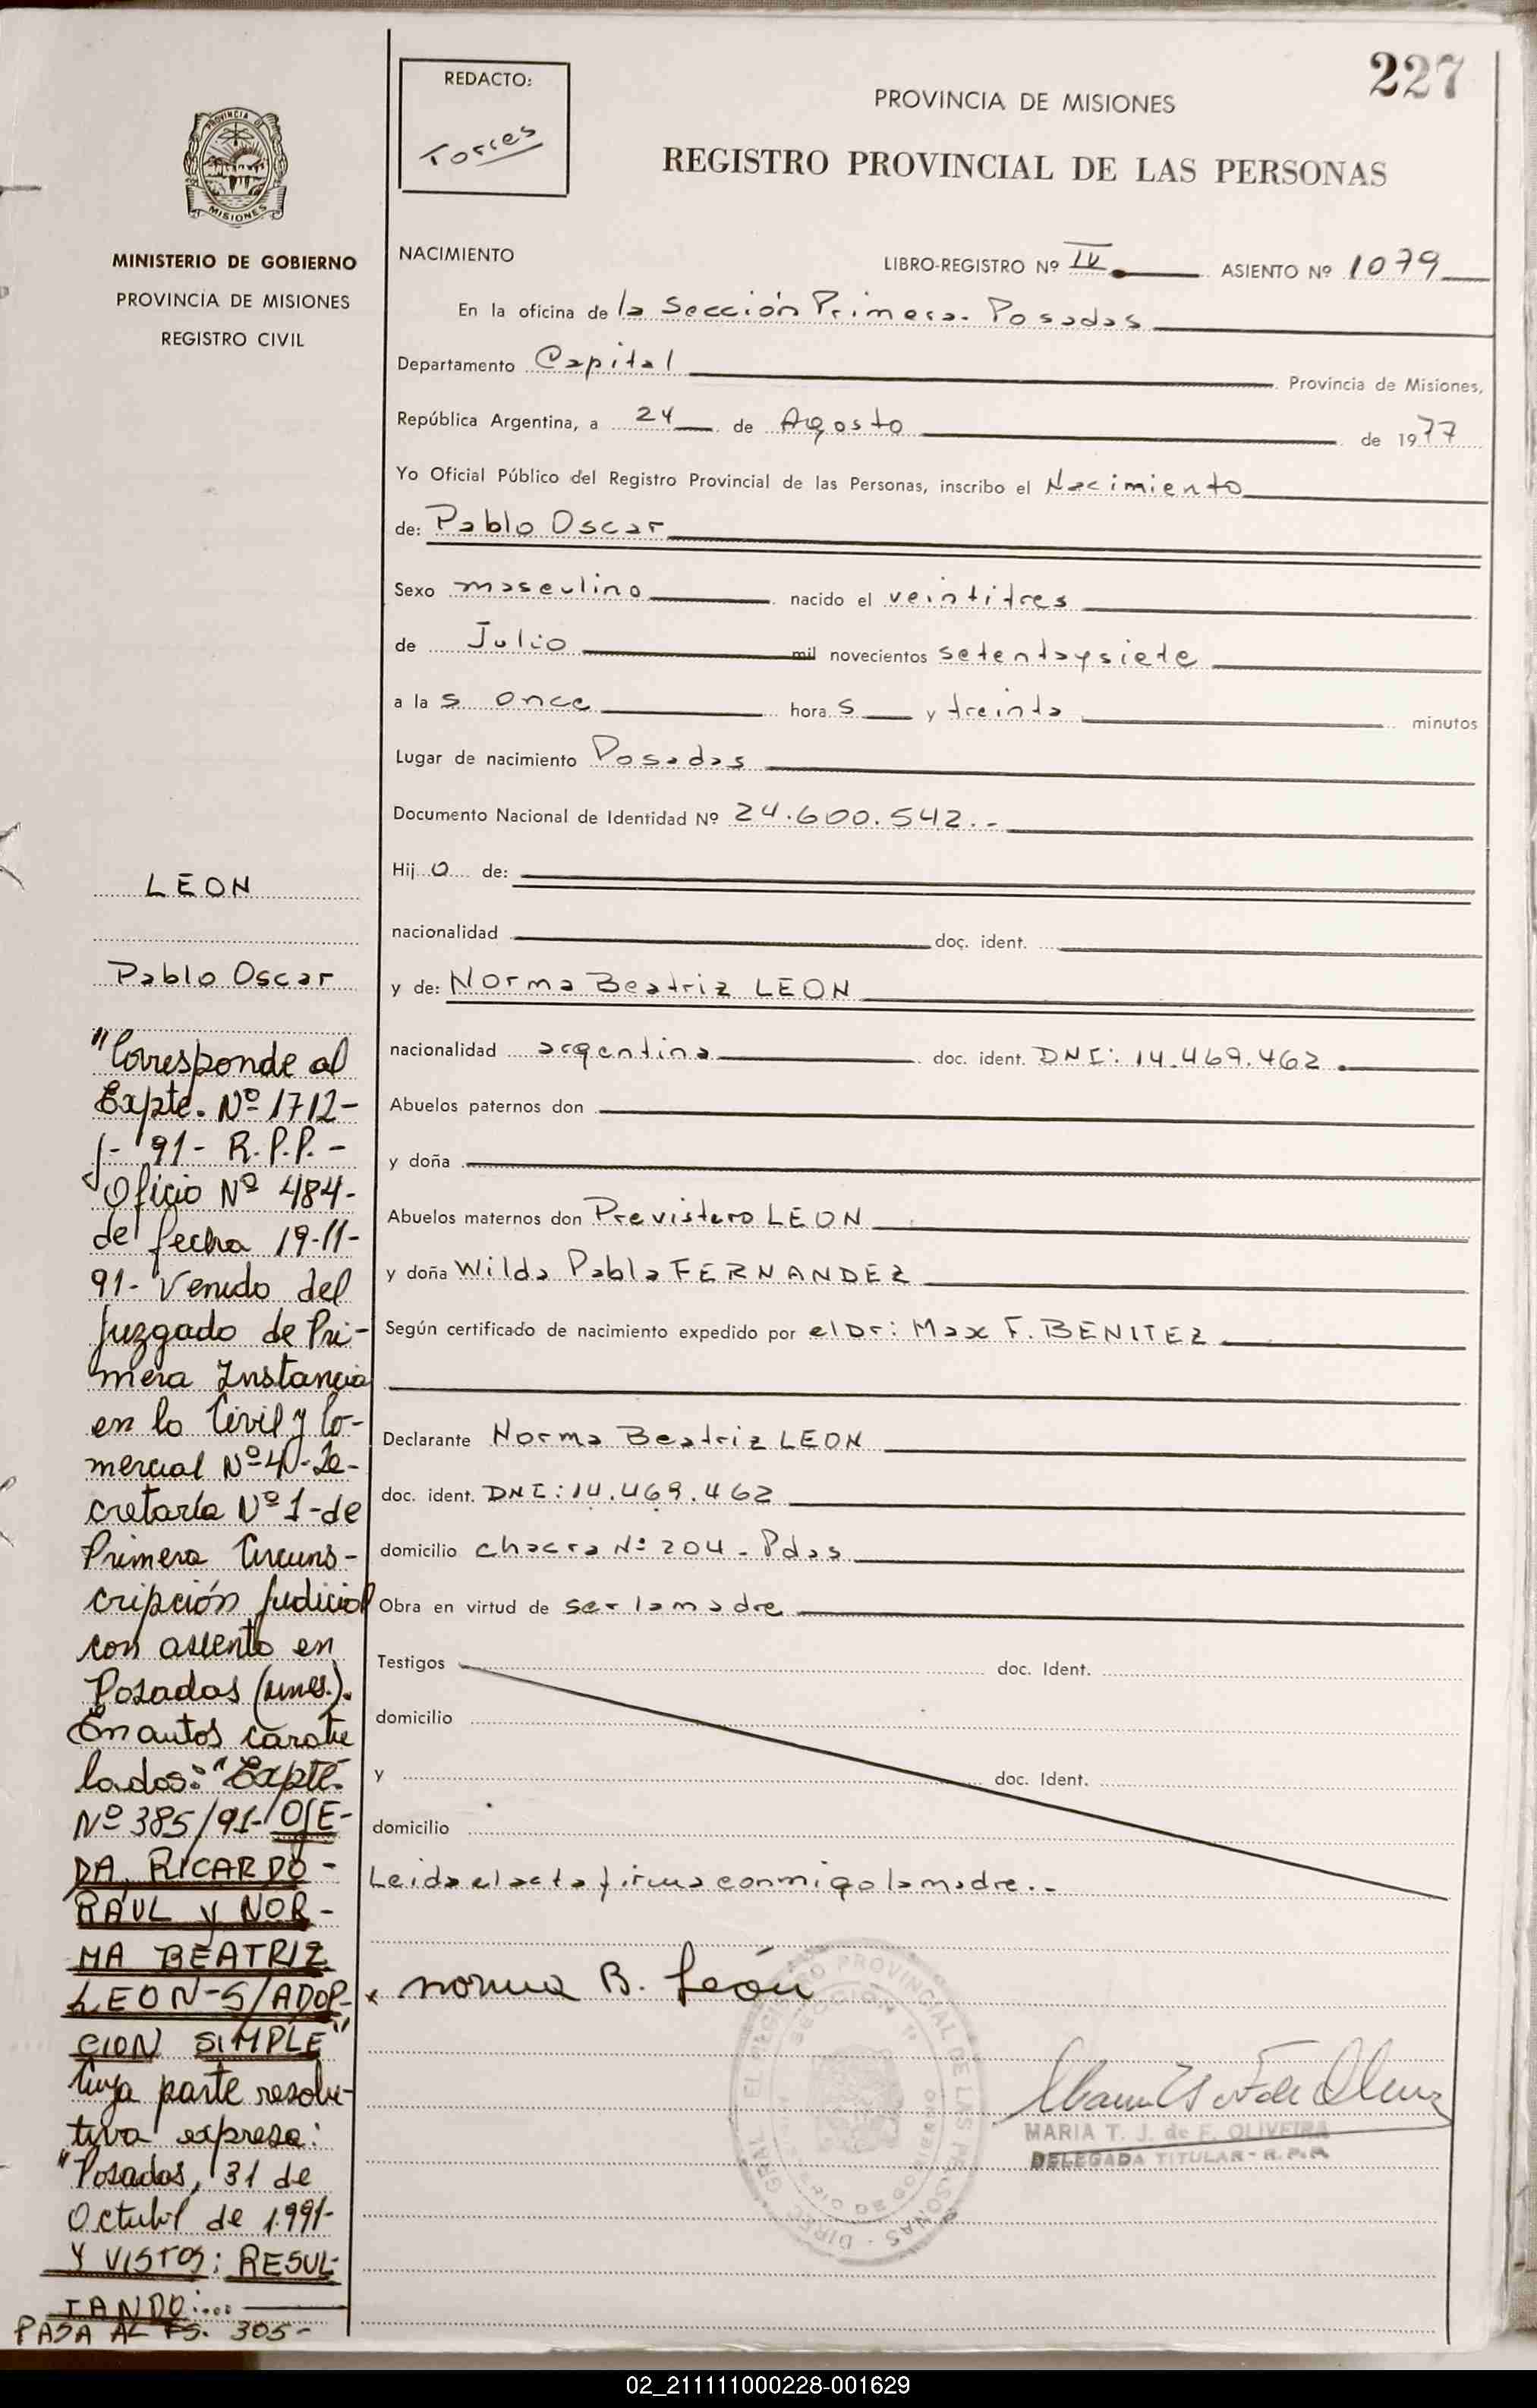 227
REDACTO:
Torres
PROVINCIA DE MISIONES
REGISTRO PROVINCIAL DE LAS PERSONAS
PROVINCIA D
MISIONES
MINISTERIO DE GOBIERNO
PROVINCIA DE MISIONES
REGISTRO CIVIL
NACIMIENTO
LIBRO-REGISTRO Nº IV. ASIENTO Nº 1079
En la oficina de la Sección Primera. Posadas
Departamento Capital Provincia de Misiones,
República Argentina, a 24 de Agosto de 1977
Yo Oficial Público del Registro Provincial de las Personas, inscribo el Nacimiento
de: Pablo Oscar
Sexo masculino nacido el veintitres
de Julio mil novecientos setentaysiete
a la s once hora s y treinta minutos
Lugar de nacimiento Posadas
Documento Nacional de Identidad Nº 24.600.542.-
Hij o de:
nacionalidad doc. ident.
y de: Norma Beatriz LEON
nacionalidad argentina doc. ident. DNI: 14.469.462.
Abuelos paternos don
y doña
Abuelos maternos don Previstero LEON
y doña Wilda Pabla FERNANDEZ
Según certificado de nacimiento expedido por el Dr: Max F. BENITEZ
Declarante Norma Beatriz LEON
doc. ident. DNI: 14.469.462
domicilio chacra Nº 204 - Pdas
Obra en virtud de ser la madre
Testigos doc. Ident.
domicilio
y doc. Ident.
domicilio
Leida el acta firma conmigo la madre.-
x norma B. León
MARIA T. J. de F. OLIVEIRA
DELEGADA TITULAR - R.P.P.
DIREC. GRAL. EL REGISTRO PROVINCIAL DE LAS PERSONAS
LEON
Pablo Oscar
"Corresponde al
Expte. Nº 1712-
J- 91- R.P.P.-
Oficio Nº 484-
de fecha 19-11-
91- Venido del
Juzgado de Pri-
mera Instancia
en lo Civil y Co-
mercial Nº 4-Se-
cretaría Nº 1-de
Primera Circuns-
cripción Judicial
con asiento en
Posadas (Mnes.).
En autos caratu
lados: "Expte.
Nº 385/91- OJE-
DA RICARDO -
RAUL y NOR-
MA BEATRIZ
LEON-S/ADOP-
CION SIMPLE"
Cuya parte resolu-
tiva expresa:
"Posadas, 31 de
Octubre de 1.991-
Y VISTOS: RESUL-
TANDO:...
PASA AL FS. 305-
02_211111000228-001629